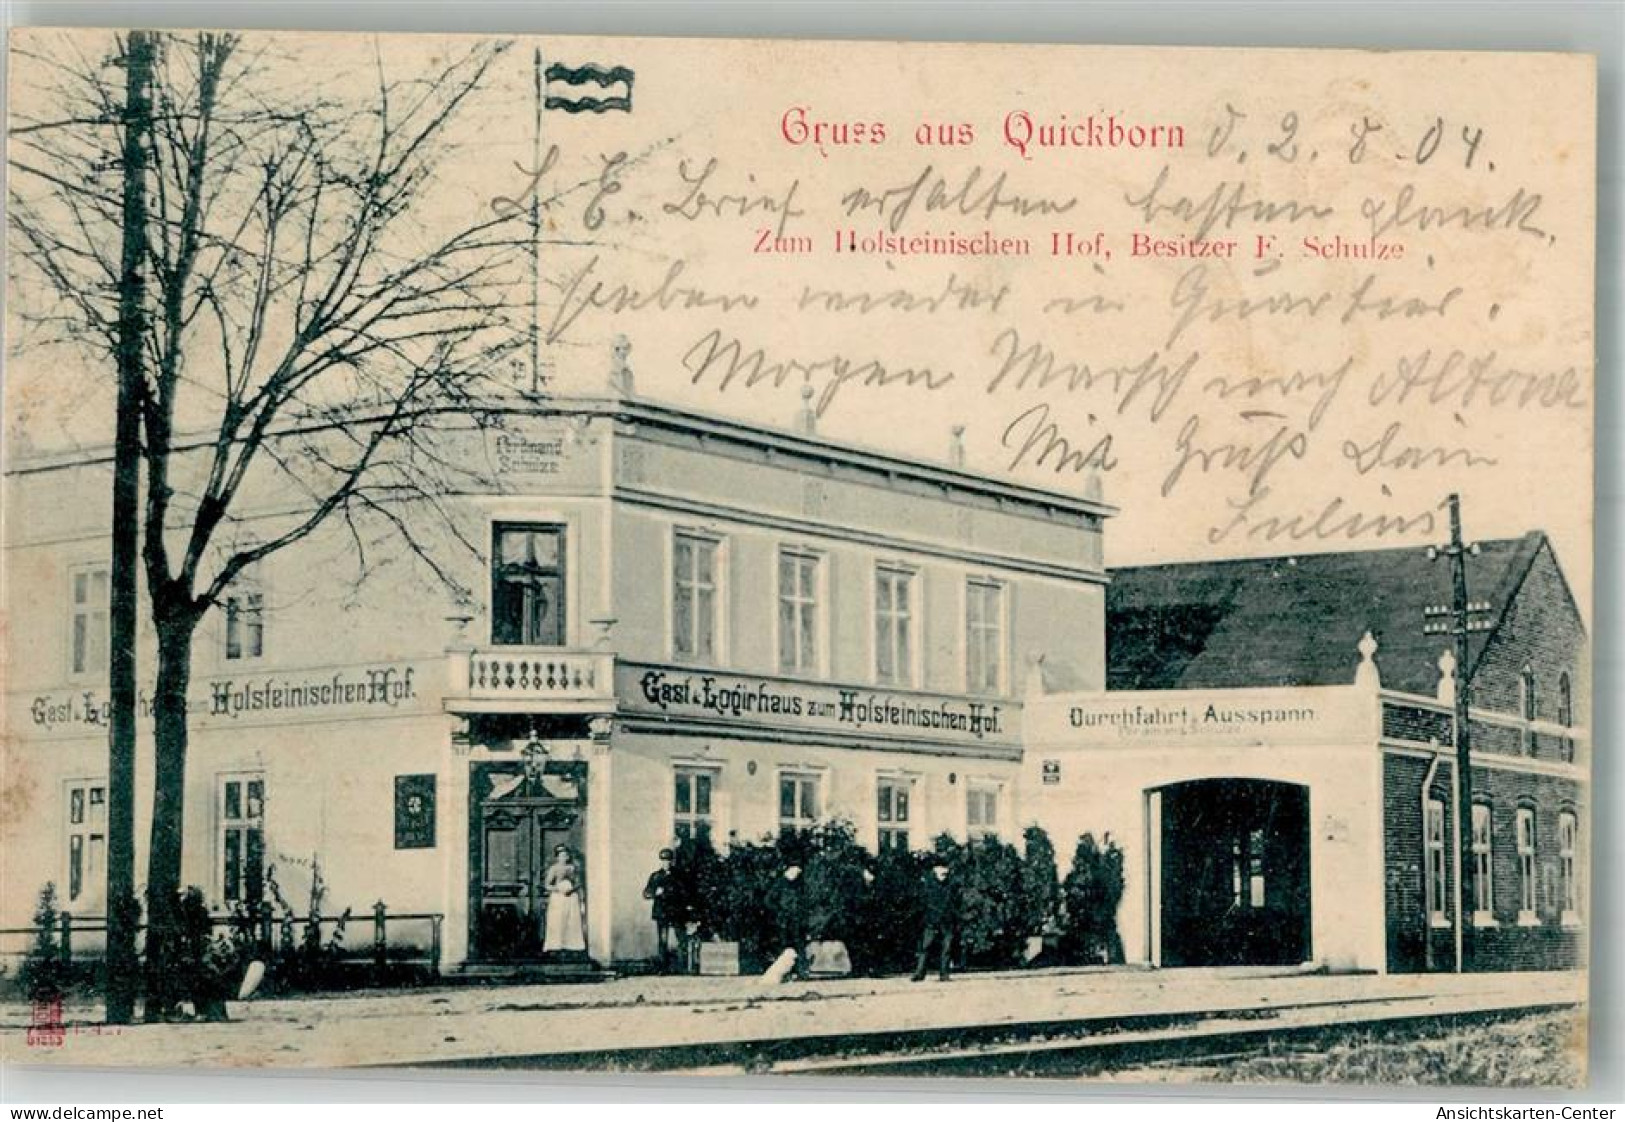 Gruss aus Quickborn d. 2. 8. 04.
L. E. Brief erhalten besten Dank,
Zum Holsteinischen Hof, Besitzer F. Schulze
wieder in Quartier.
Morgen Marsch nach Altona
Mit Gruß Dein
Julius
Ferdinand
Schulze
Gast & Logirhaus zum Holsteinischen Hof.
Gast & Logirhaus zum Holsteinischen Hof.
Durchfahrt & Ausspann.
Ferdinand Schulze
oldthing.de
Ansichtskarten-Center